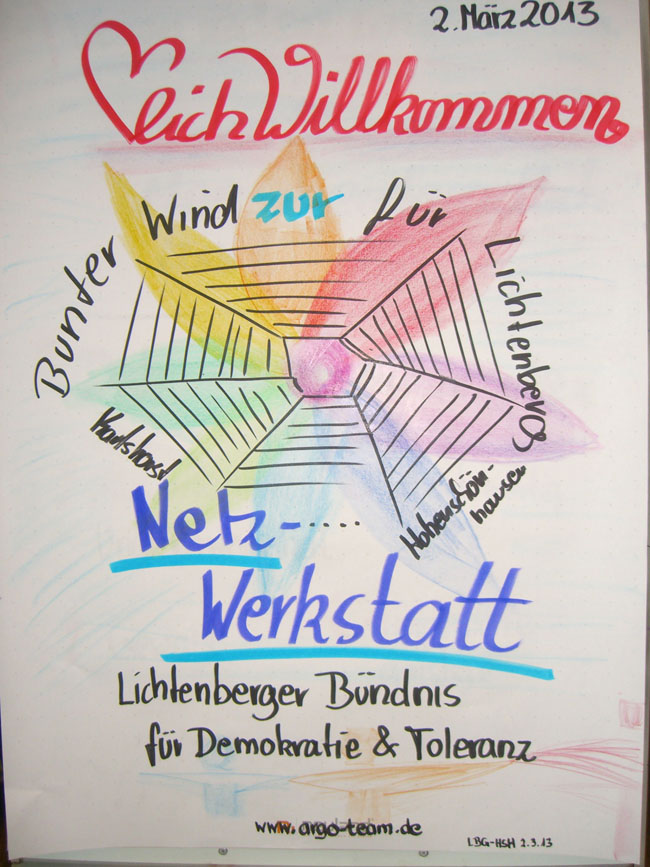 2. März 2013
lich Willkommen
Bunter Wind zur für Lichtenberg
Karlshorst
Hohenschön-
hausen
Netz-.....
Werkstatt
Lichtenberger Bündnis
für Demokratie & Toleranz
www.argo-team.de
LBG-HSH 2.3.13